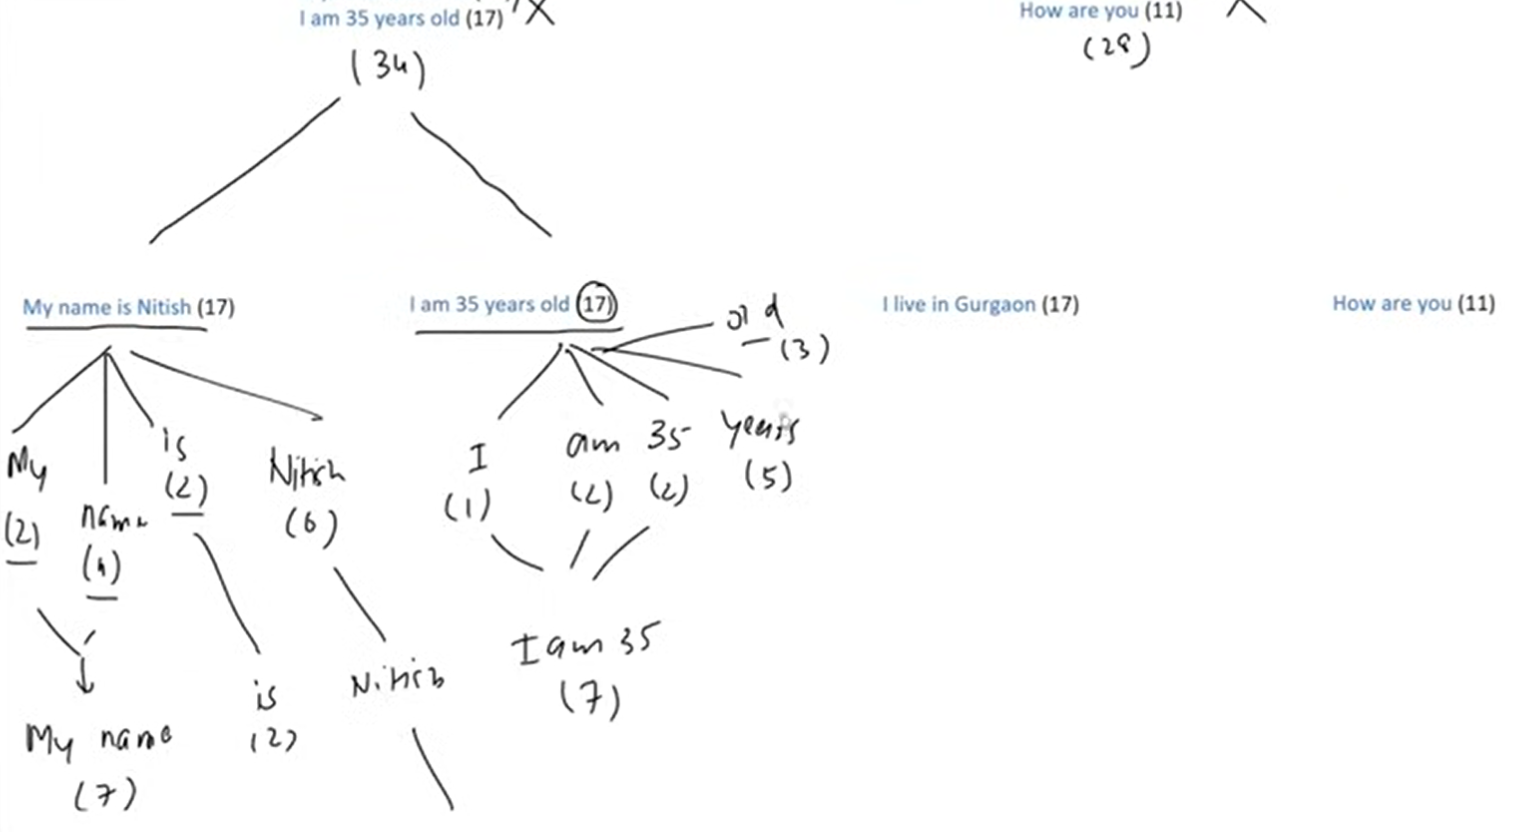 I am 35 years old (17) X
How are you (11)
(34)
(28)
My name is Nitish (17)
I am 35 years old (17)
I live in Gurgaon (17)
How are you (11)
old
(3)
My
(2)
name
(4)
is
(2)
Nitish
(6)
I
(1)
am
(2)
35
(2)
years
(5)
My name
(7)
is
(2)
Nitish
I am 35
(7)